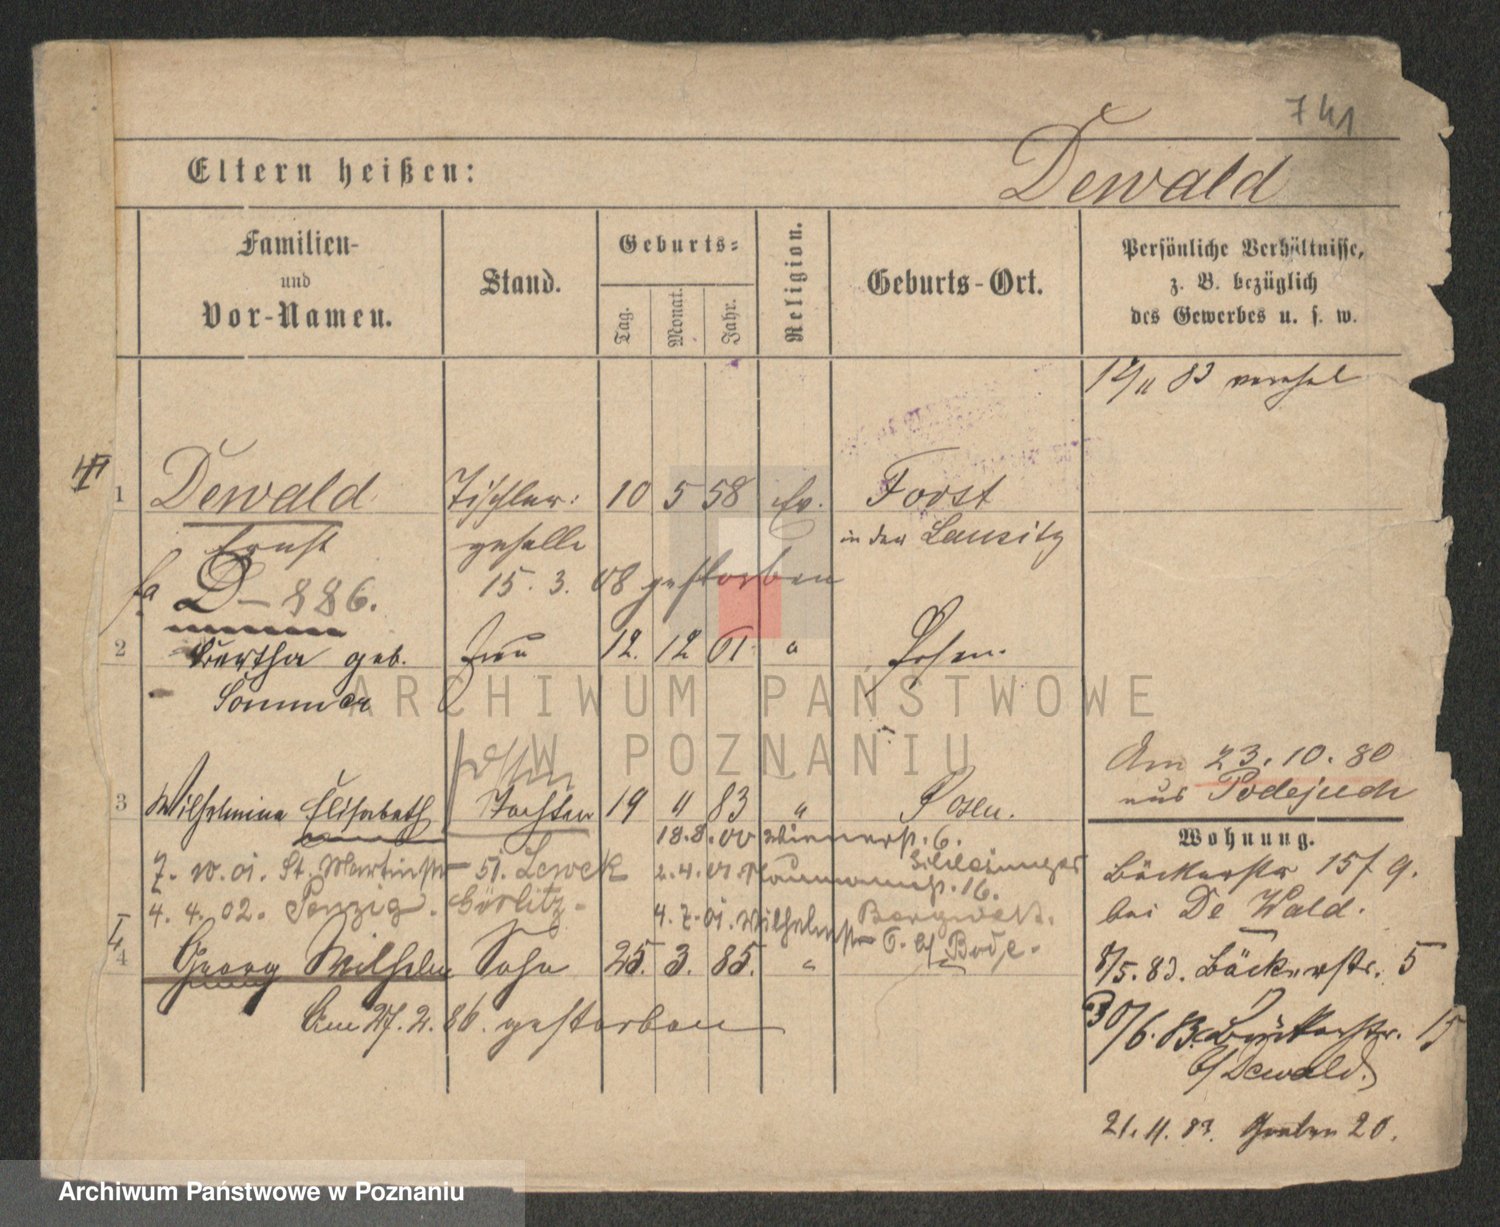 741
Eltern heißen:
Dewald
Familien-
und
Vor-Namen.
Stand.
Geburts-
Tag.
Monat.
Jahr.
Religion.
Geburts-Ort.
Persönliche Verhältnisse,
z. B. bezüglich
des Gewerbes u. s. w.
83
1 Dewald Tischler: 10 5 58 Ev. Forst
Ernst geselle in der Lausitz
D-886. 15. 3. 08 gestorben
2 Bertha geb. Frau 12. 12 61 " Posen.
Sommer
Posen
Am 23.10.80
aus Podejuch
3 Wilhelmine Elisabeth Tochter 19 11 83 " Posen.
18.8.00 Wienerst. 6.
7. 10. 01. St. Martinstr 51. Leweck 2.4.01.
16.
4. 4. 02. Penzig. Görlitz. 4.7.01. Wilhelmstr 6. b/ Bode.
4 Georg Wilhelm Sohn 25. 3. 85. "
Am 27.2.86. gestorben
Wohnung.
Bäckerstr 15 / 9.
bei De Wald.
8/5. 83. Bäckerstr. 5
30/6. 83. Bäckerstr. 15
b/ Dewald.
21. 11. 83. Graben 20.
ARCHIWUM PAŃSTWOWE
W POZNANIU
Archiwum Państwowe w Poznaniu